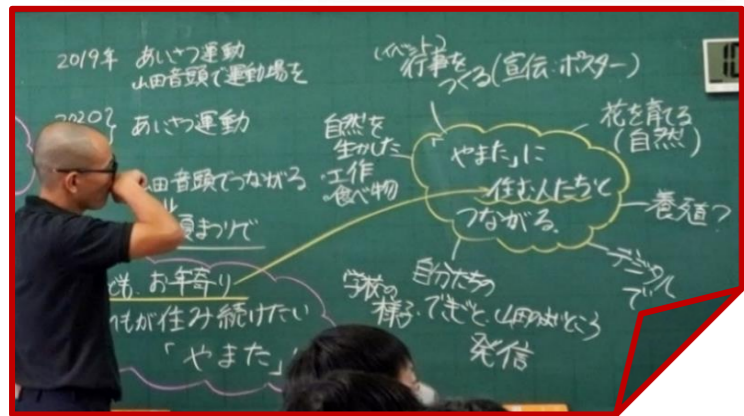 2019年 あいさつ運動
山田音頭で運動場を
2020?
あいさつ運動
山田音頭でつながる
まつりで
も、お年寄り
もが住み続けたい
「やまた」
(イベント)
行事を
つくる(宣伝:ポスター)
自然を
生かした
・工作
・食べ物
「やまた」に
住む人たちと
つながる。
花を育てる
(自然)
養殖?
デジタル
で
自分たちの
学校の
様子・できごと、山田のよいところ
発信